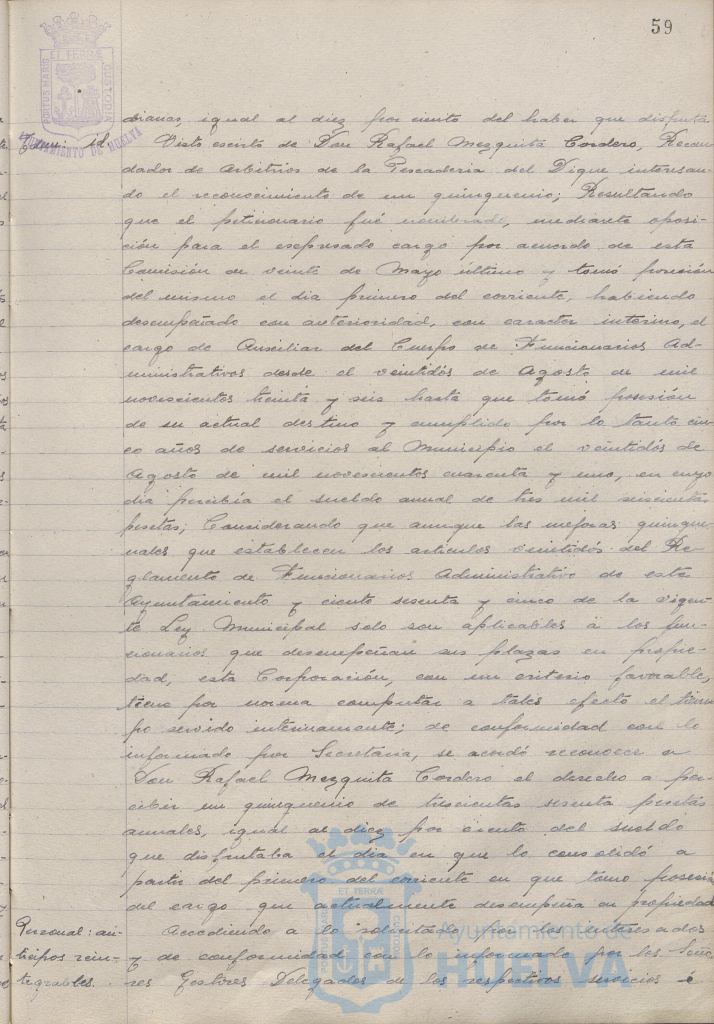 59
PORTUS MARIS ET TERRÆ CUSTODIA
AYUNTAMIENTO DE HUELVA
dianas, igual al diez por ciento del haber que disfruta
Idem: id.
Visto escrito de Don Rafael Mezquita Cordero, Recau-
dador de Arbitrios de la Pescaderia del Dique interesan-
do el reconocimiento de un quinquenio; Resultando
que el peticionario fué nombrado, mediante oposi-
ción para el expresado cargo por acuerdo de esta
Comisión de veinte de Mayo último y tomó posesión
del mismo el dia primero del corriente, habiendo
desempeñado con anterioridad, con caracter interino, el
cargo de Auxiliar del Cuerpo de Funcionarios Ad-
ministrativos desde el veintidós de Agosto de mil
novecientos treinta y seis hasta que tomó posesión
de su actual destino y cumplido por lo tanto cin-
co años de servicios al Municipio el veintidós de
Agosto de mil novecientos cuarenta y uno, en cuyo
dia percibia el sueldo anual de tres mil seiscientas
pesetas; Considerando que aunque las mejoras quinque-
nales que establecen los articulos veintidós del Re-
glamento de Funcionarios Administrativo de este
Ayuntamiento y ciento sesenta y cinco de la vigen-
te Ley Municipal solo son aplicables a los fun-
cionarios que desempeñan sus plazas en propie-
dad, esta Corporación, con un criterio favorable,
tiene por norma computar a tales efecto el tiem-
po servido interinamente; de conformidad con lo
informado por Secretaria, se acordó reconocer a
Don Rafael Mezquita Cordero el derecho a per-
cibir un quinquenio de trescientas sesenta pesetas
anuales, igual al diez por ciento del sueldo
que disfrutaba el dia en que lo consolidó a
partir del primero del corriente en que tomo posesion
del cargo que actualmente desempeña en propiedad
Personal: an-
ticipos rein-
tegrables.
Accediendo a lo solicitado por los interesados
y de conformidad con lo informado por los Seño-
res Gestores Delegados de los respectivos servicios é
Ayuntamiento de
HUELVA